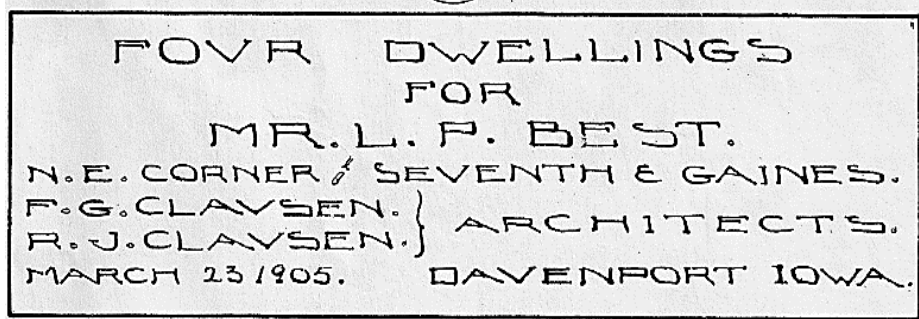 FOVR DWELLINGS
FOR
MR. L. P. BEST.
N.E. CORNER SEVENTH & GAINES.
F.G. CLAVSEN.
R.J. CLAVSEN. } ARCHITECTS.
MARCH 23 1905. DAVENPORT IOWA.